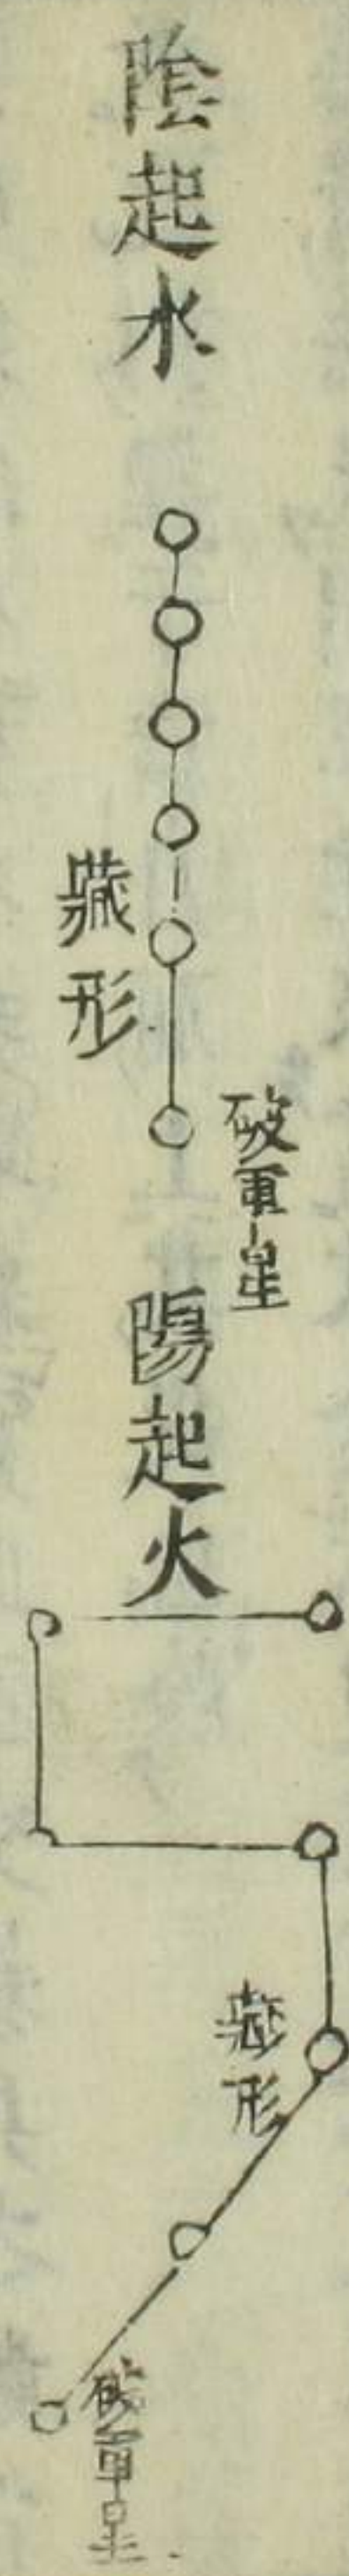 陰起水
藏形
破軍星
陽起火
藏形
破軍星